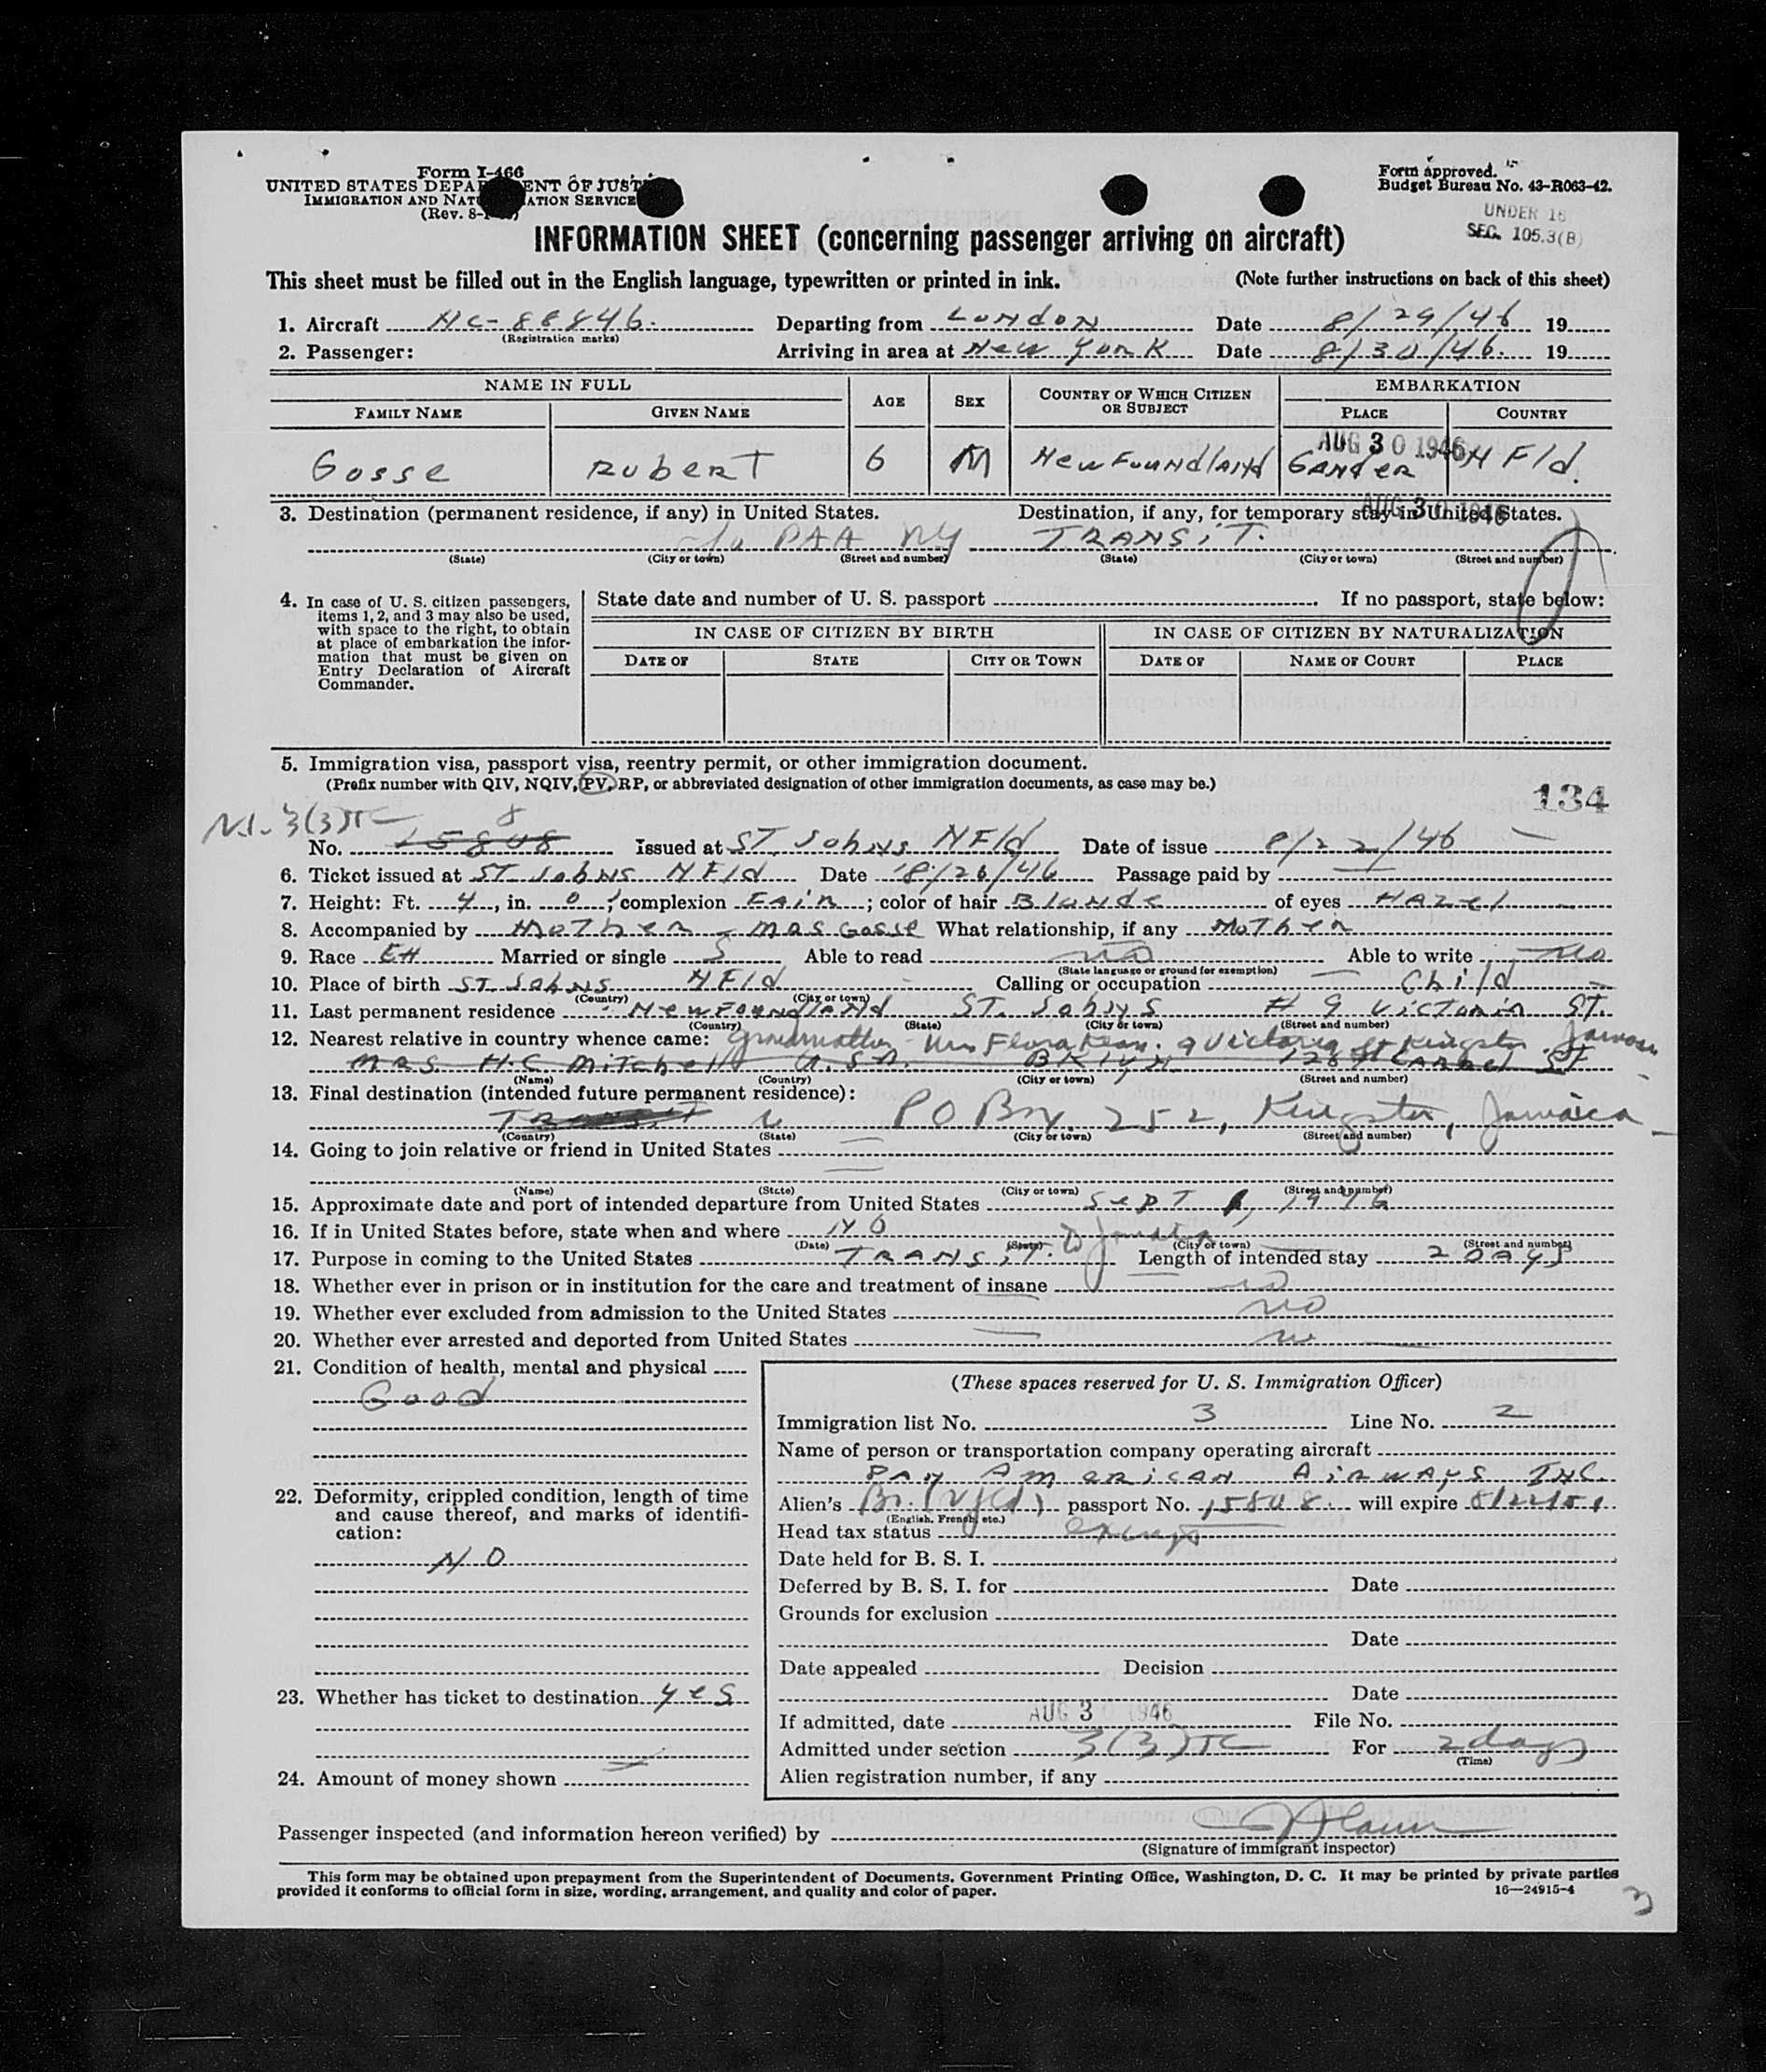 Form I-466
UNITED STATES DEPARTMENT OF JUSTICE
IMMIGRATION AND NATURALIZATION SERVICE
(Rev. 8-
Form approved.
Budget Bureau No. 43-R063-42.
UNDER 16
SEC. 105.3(B)
INFORMATION SHEET (concerning passenger arriving on aircraft)
This sheet must be filled out in the English language, typewritten or printed in ink. (Note further instructions on back of this sheet)
1. Aircraft NC-88846. Departing from LONDON Date 8/29/46 19
(Registration marks)
2. Passenger: Arriving in area at New York Date 8/30/46. 19
NAME IN FULL
FAMILY NAME GIVEN NAME AGE SEX COUNTRY OF WHICH CITIZEN OR SUBJECT EMBARKATION
PLACE COUNTRY
AUG 30 1946
Gosse ROBERT 6 M Newfoundland GANDER N Fld.
AUG 30 1946
3. Destination (permanent residence, if any) in United States. Destination, if any, for temporary stay in United States.
c/o PAA NY TRANSIT.
(State) (City or town) (Street and number) (State) (City or town) (Street and number)
4. In case of U. S. citizen passengers, items 1, 2, and 3 may also be used, with space to the right, to obtain at place of embarkation the information that must be given on Entry Declaration of Aircraft Commander.
State date and number of U. S. passport . If no passport, state below:
IN CASE OF CITIZEN BY BIRTH IN CASE OF CITIZEN BY NATURALIZATION
DATE OF STATE CITY OR TOWN DATE OF NAME OF COURT PLACE
5. Immigration visa, passport visa, reentry permit, or other immigration document.
(Prefix number with QIV, NQIV, PV, RP, or abbreviated designation of other immigration documents, as case may be.)
134
3(3)TC 8
No. 15808 Issued at ST. Johns NFld Date of issue 8/22/46
6. Ticket issued at ST. Johns NFld Date 8/26/46 Passage paid by
7. Height: Ft. 4, in. 0; complexion FAIR; color of hair Blonde of eyes HAZel
8. Accompanied by Mother - MRS Gosse What relationship, if any Mother
9. Race EH Married or single S Able to read no Able to write no
(State language or ground for exemption)
10. Place of birth ST. Johns NFld Calling or occupation Child
(Country) (City or town)
11. Last permanent residence Newfoundland ST. Johns # 9 Victoria ST.
(Country) (State) (City or town) (Street and number)
12. Nearest relative in country whence came: Grandmother - Mrs Flora Kean. 9 Victoria St Kingston Jamaica
MRS H.C. Mitchell U.S.A. BKlyn ST
(Name) (Country) (City or town) (Street and number)
13. Final destination (intended future permanent residence):
TRANSIT PO Box 252, Kingston, Jamaica
(Country) (State) (City or town) (Street and number)
14. Going to join relative or friend in United States
(Name) (State) (City or town) (Street and number)
15. Approximate date and port of intended departure from United States SepT 1, 1946
16. If in United States before, state when and where NO
(Date) (State) (City or town) (Street and number)
17. Purpose in coming to the United States TRANSIT. to Jamaica Length of intended stay 2 DAYS
18. Whether ever in prison or in institution for the care and treatment of insane no
19. Whether ever excluded from admission to the United States no
20. Whether ever arrested and deported from United States no
21. Condition of health, mental and physical
Good
22. Deformity, crippled condition, length of time and cause thereof, and marks of identification:
NO
23. Whether has ticket to destination yes
24. Amount of money shown
(These spaces reserved for U. S. Immigration Officer)
Immigration list No. 3 Line No. 2
Name of person or transportation company operating aircraft
PAN AMERICAN AIRWAYS INC.
Alien's Br. (Nfld) passport No. 15808 will expire 8/22/51
(English, French, etc.)
Head tax status exempt
Date held for B. S. I.
Deferred by B. S. I. for Date
Grounds for exclusion
Date
Date appealed Decision
Date
If admitted, date AUG 30 1946 File No.
Admitted under section 3(3)TC For 2 days
(Time)
Alien registration number, if any
Passenger inspected (and information hereon verified) by
(Signature of immigrant inspector)
This form may be obtained upon prepayment from the Superintendent of Documents, Government Printing Office, Washington, D. C. It may be printed by private parties
provided it conforms to official form in size, wording, arrangement, and quality and color of paper. 16—24915-4
3